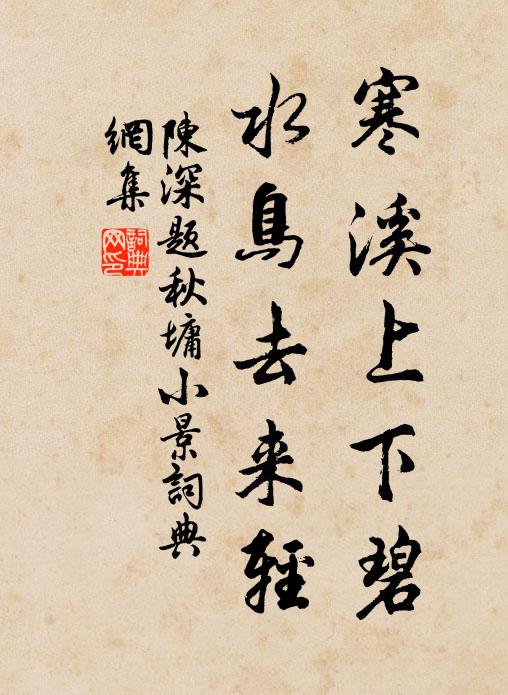 寒溪上下碧
水鳥去来輕
陳深题秋墉小景詞典
網集
詞典
网印